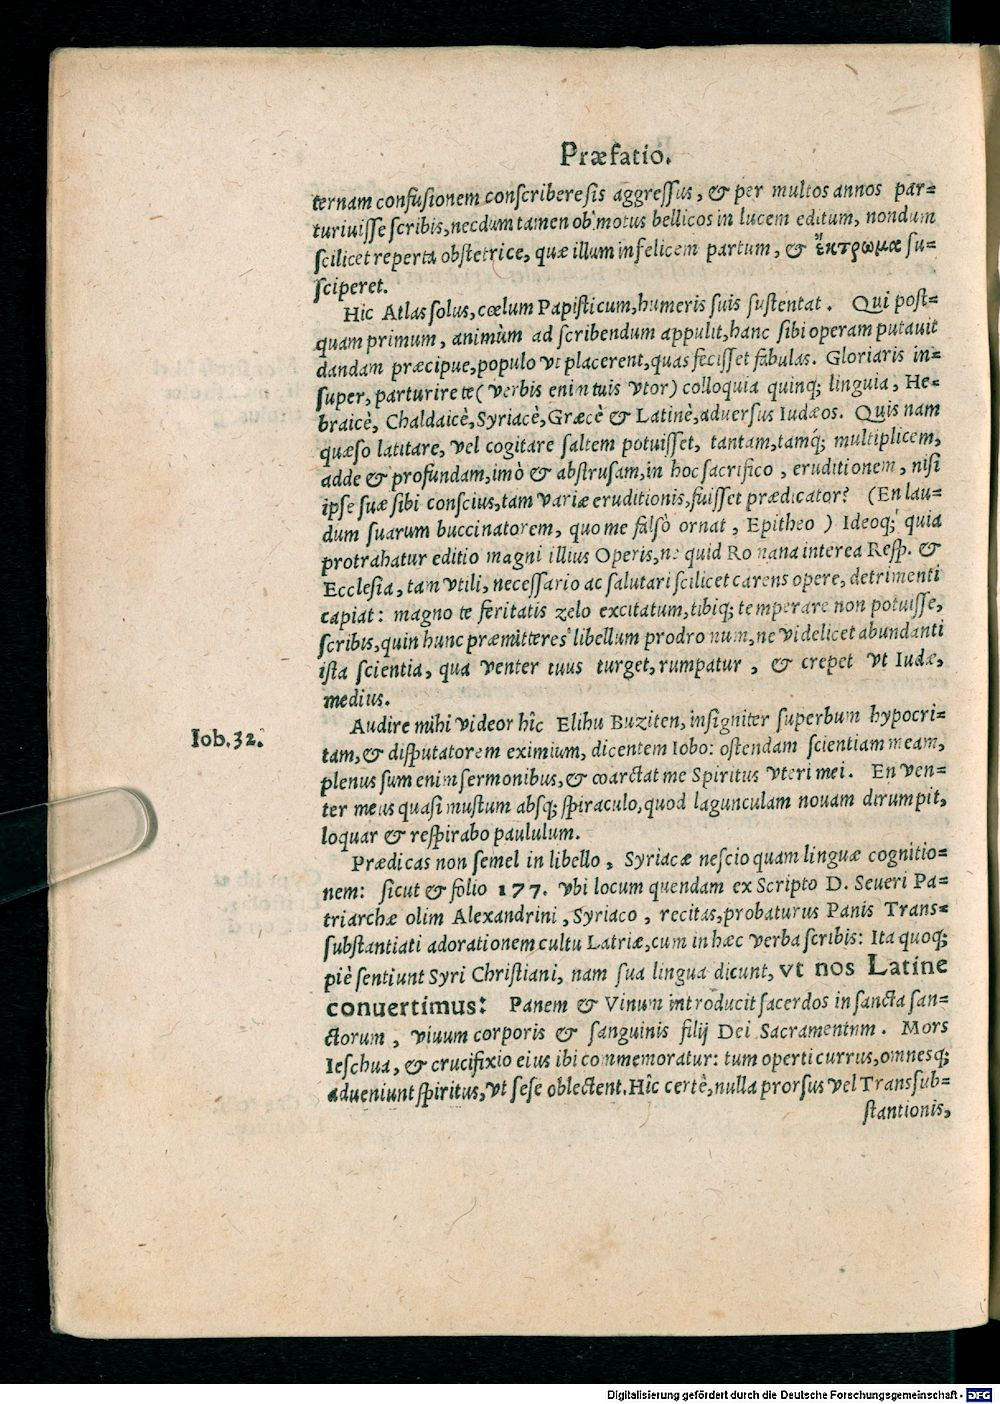 Præfatio.
ternam confusionem conscribere sis aggressus, & per multos annos par=
turiuisse scribis, necdum tamen ob motus bellicos in lucem editum, nondum
scilicet reperta obstetrice, quæ illum infelicem partum, & ἔκτρωμα su=
sciperet.
Hic Atlas solus, cœlum Papisticum, humeris suis sustentat. Qui post=
quam primum, animùm ad scribendum appulit, hanc sibi operam putauit
dandam præcipue, populo vt placerent, quas fecisset fabulas. Gloriaris in=
super, parturire te (verbis enim tuis vtor) colloquia quinq; linguia, He=
braicè, Chaldaicè, Syriacè, Græcè & Latinè, aduersus Iudæos. Quis nam
quæso latitare, vel cogitare saltem potuisset, tantam, tamq́; multiplicem,
adde & profundam, imò & abstrusam, in hoc sacrifico, eruditionem, nisi
ipse suæ sibi conscius, tam variæ eruditionis, fuisset prædicator? (En lau=
dum suarum buccinatorem, quo me falsò ornat, Epitheo) Ideoq; quia
protrahatur editio magni illius Operis, ne quid Romana interea Resp. &
Ecclesia, tam vtili, necessario ac salutari scilicet carens opere, detrimenti
capiat: magno te feritatis zelo excitatum, tibiq; temperare non potuisse,
scribis, quin hunc præmitteres libellum prodromum, ne videlicet abundanti
ista scientia, qua venter tuus turget, rumpatur, & crepet vt Iudæ,
medius.
Audire mihi videor hîc Elihu Buziten, insigniter superbum hypocri=
Iob. 32.
tam, & disputatorem eximium, dicentem Iobo: ostendam scientiam meam,
plenus sum enim sermonibus, & coarctat me Spiritus vteri mei. En ven=
ter meus quasi mustum absq; spiraculo, quod lagunculam nouam dirumpit,
loquar & respirabo paululum.
Prædicas non semel in libello, Syriacæ nescio quam linguæ cognitio=
nem: sicut & folio 177. vbi locum quendam ex Scripto D. Seueri Pa=
triarchæ olim Alexandrini, Syriaco, recitas, probaturus Panis Trans=
substantiati adorationem cultu Latriæ, cum in hæc verba scribis: Ita quoq;
piè sentiunt Syri Christiani, nam sua lingua dicunt, vt nos Latine
conuertimus: Panem & Vinum introducit sacerdos in sancta san=
ctorum, viuum corporis & sanguinis filij Dei Sacramentnm. Mors
Ieschua, & crucifixio eius ibi commemoratur: tum operti currus, omnesq;
adueniunt spiritus, vt sese oblectent. Hîc certè, nulla prorsus vel Transsub=
stantionis,
Digitalisierung gefördert durch die Deutsche Forschungsgemeinschaft - DFG